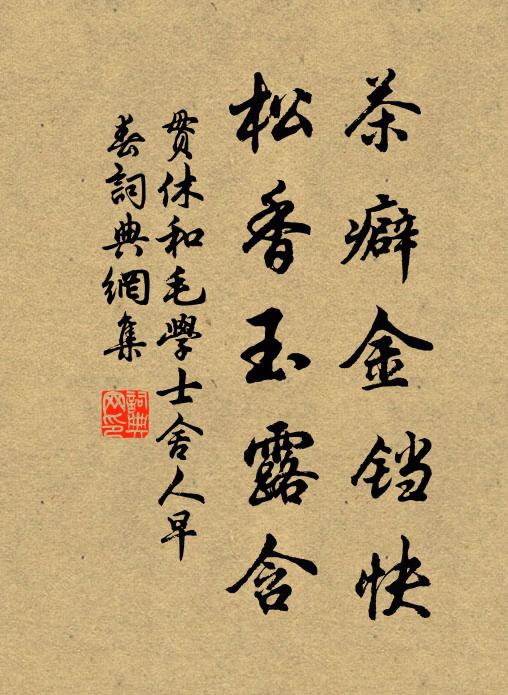 茶癖金铛快
松香玉露含
贯休和毛學士舍人早
春詞典網集
詞典网印